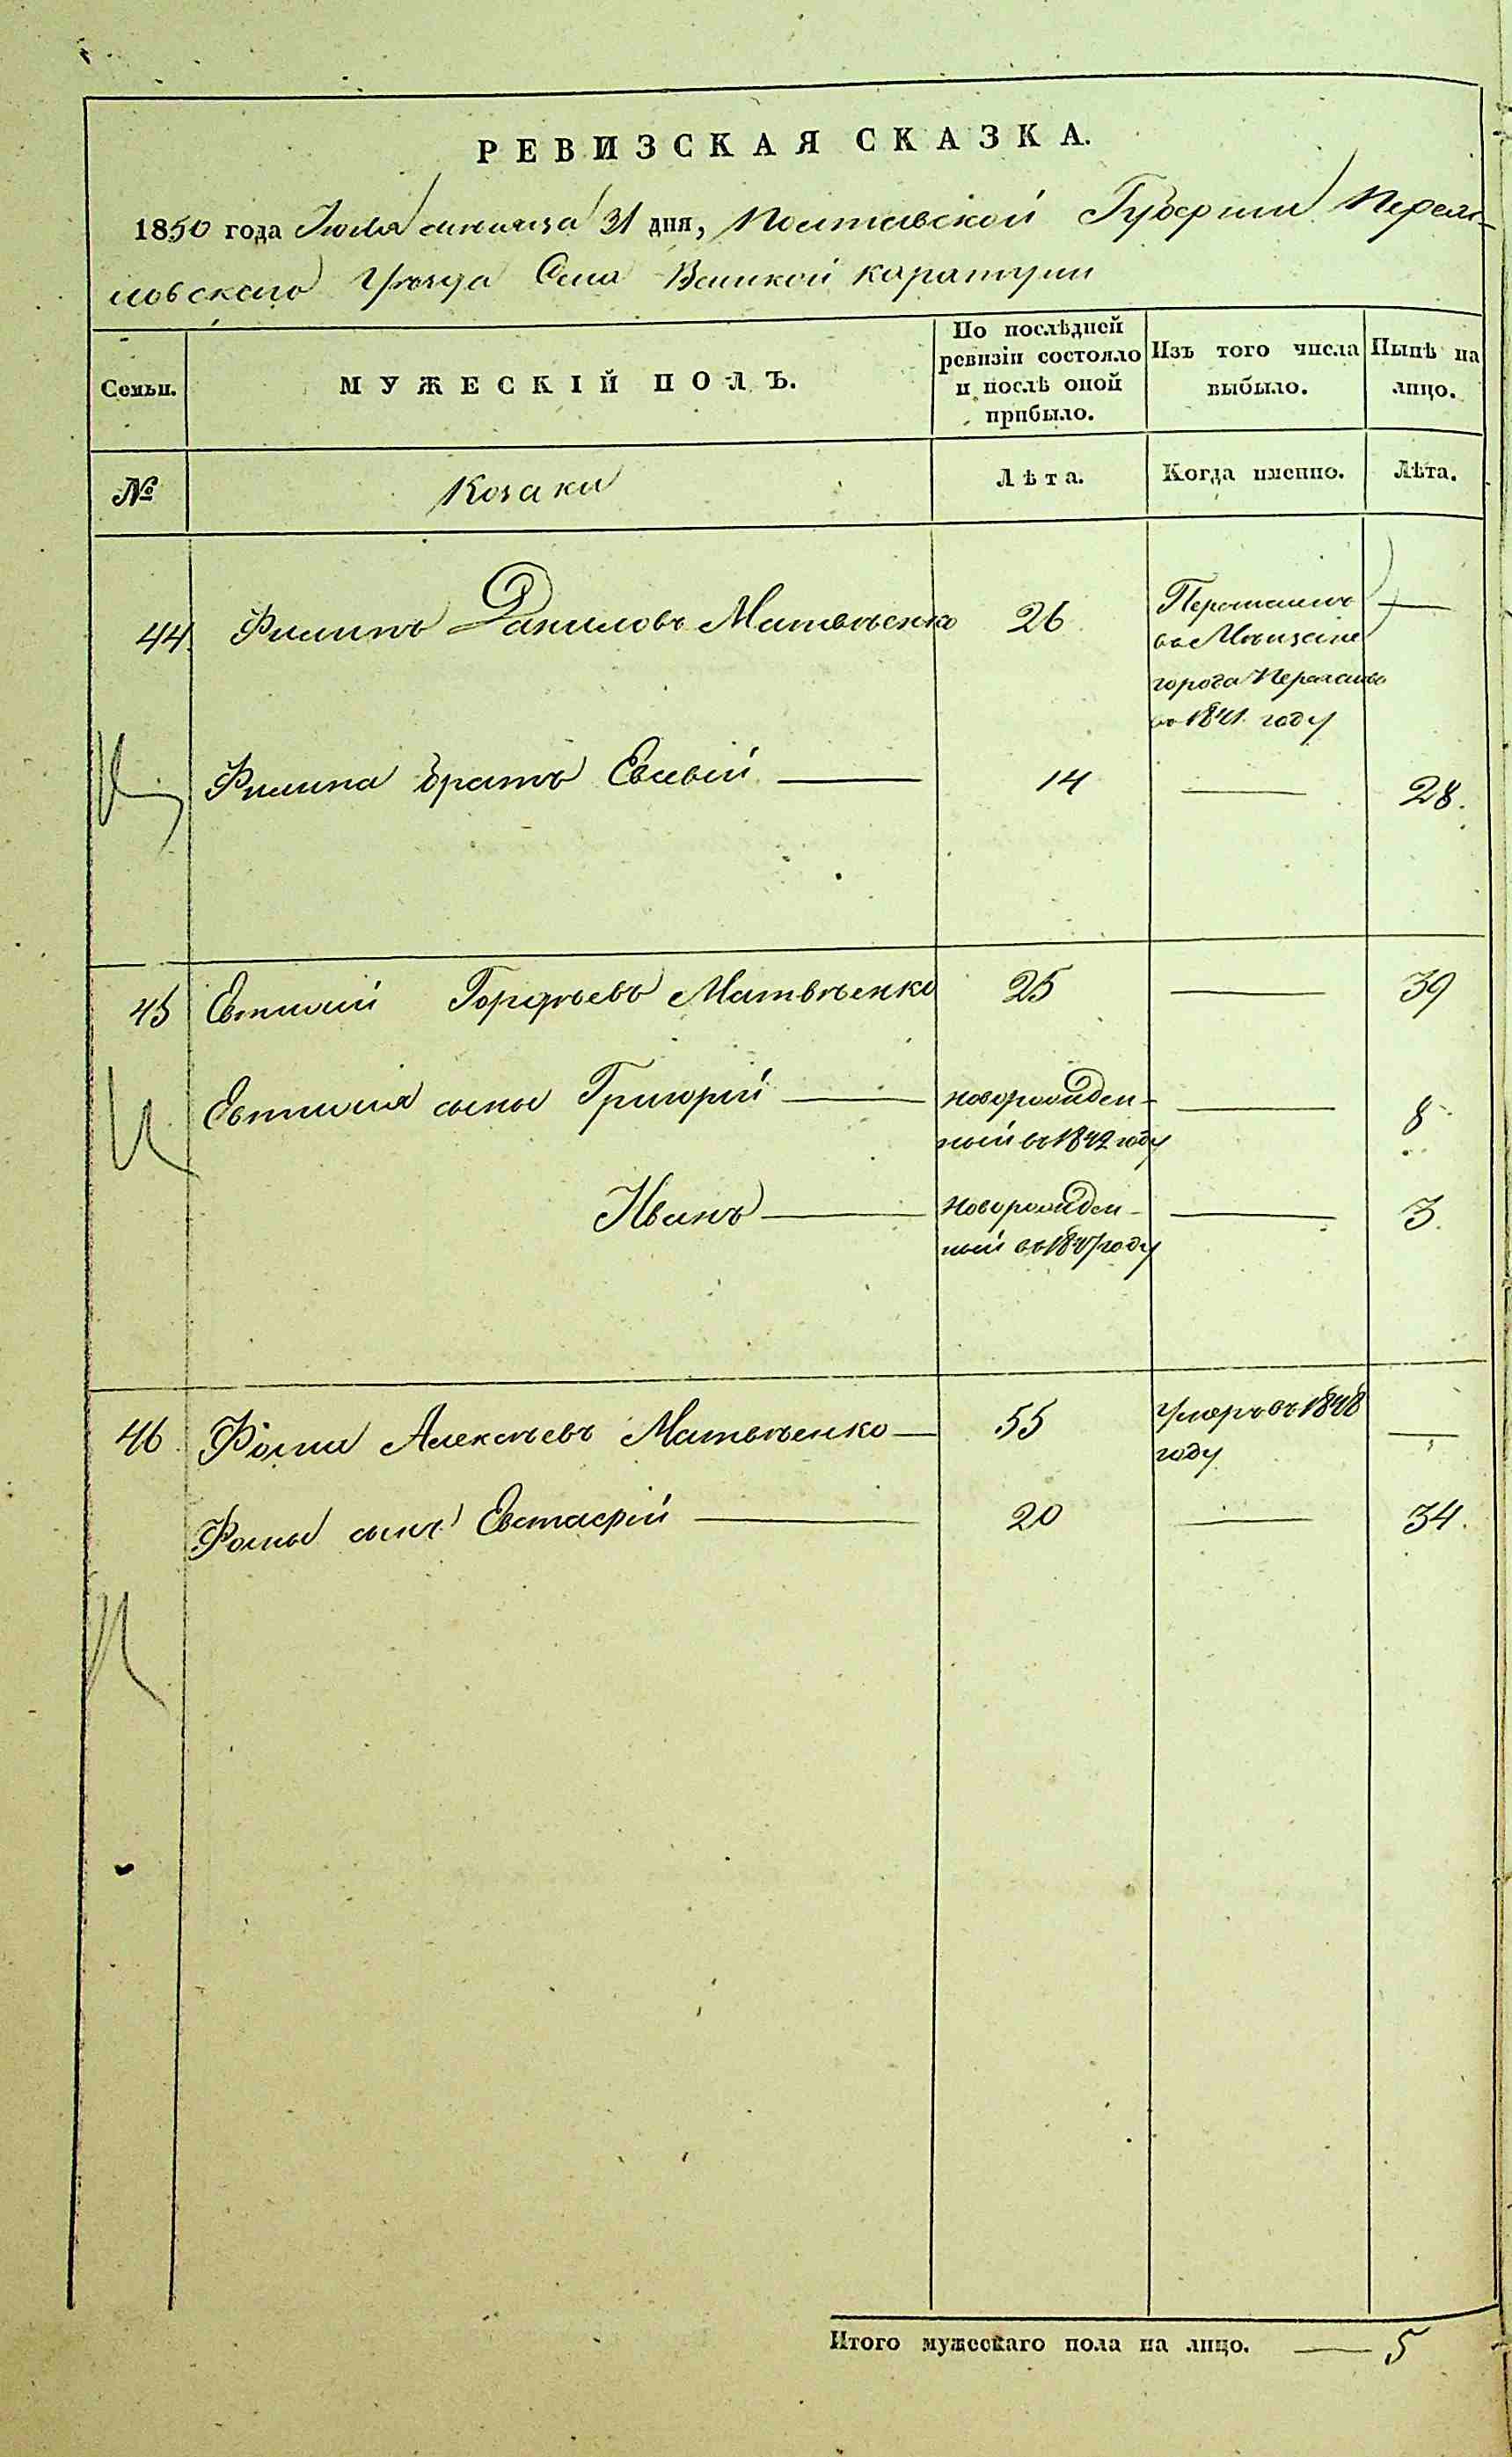 РЕВИЗСКАЯ СКАЗКА.
1850 года Іюля мѣсяца 31 дня, Полтавской Губерніи Переяс-
ловскаго Уѣзда Села Великой Каратули
Семьи.
МУЖЕСКІЙ ПОЛЪ.
По послѣдней
ревизіи состояло
и послѣ оной
прибыло.
Изъ того числа
выбыло.
Нынѣ на
лицо.
№
Козаки
Лѣта.
Когда именно.
Лѣта.
44. Филипъ Даниловъ Матвѣенко 26 —
Перечисленъ
въ Мѣщане
города Переяслова
въ 1841 году
Филипа братъ Евсевій — 14 — 28.
45 Евтихій Гордѣевъ Матвѣенко 25 — 39
Евтихія сыны Григорій — новорожден- — 8
ный въ 1842 году
Иванъ — новорожден- — 3.
ный въ 1847 году
46. Фома Алексѣевъ Матвѣенко — 55 умеръ въ 1848 —
году
Фомы сынъ Евстафій — 20 — 34.
Итого мужескаго пола на лицо. — 5